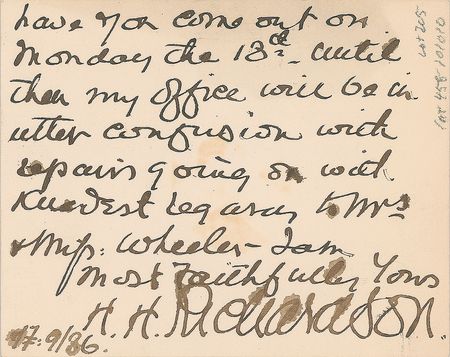 have you come out on
Monday the 13th. Until
then my office will be in
utter confusion with
repairs going on with
Kindest regards to Mrs
& Miss: Wheeler - I am
Most Faithfully Yours
H. H. Richardson.
17: 9/86.